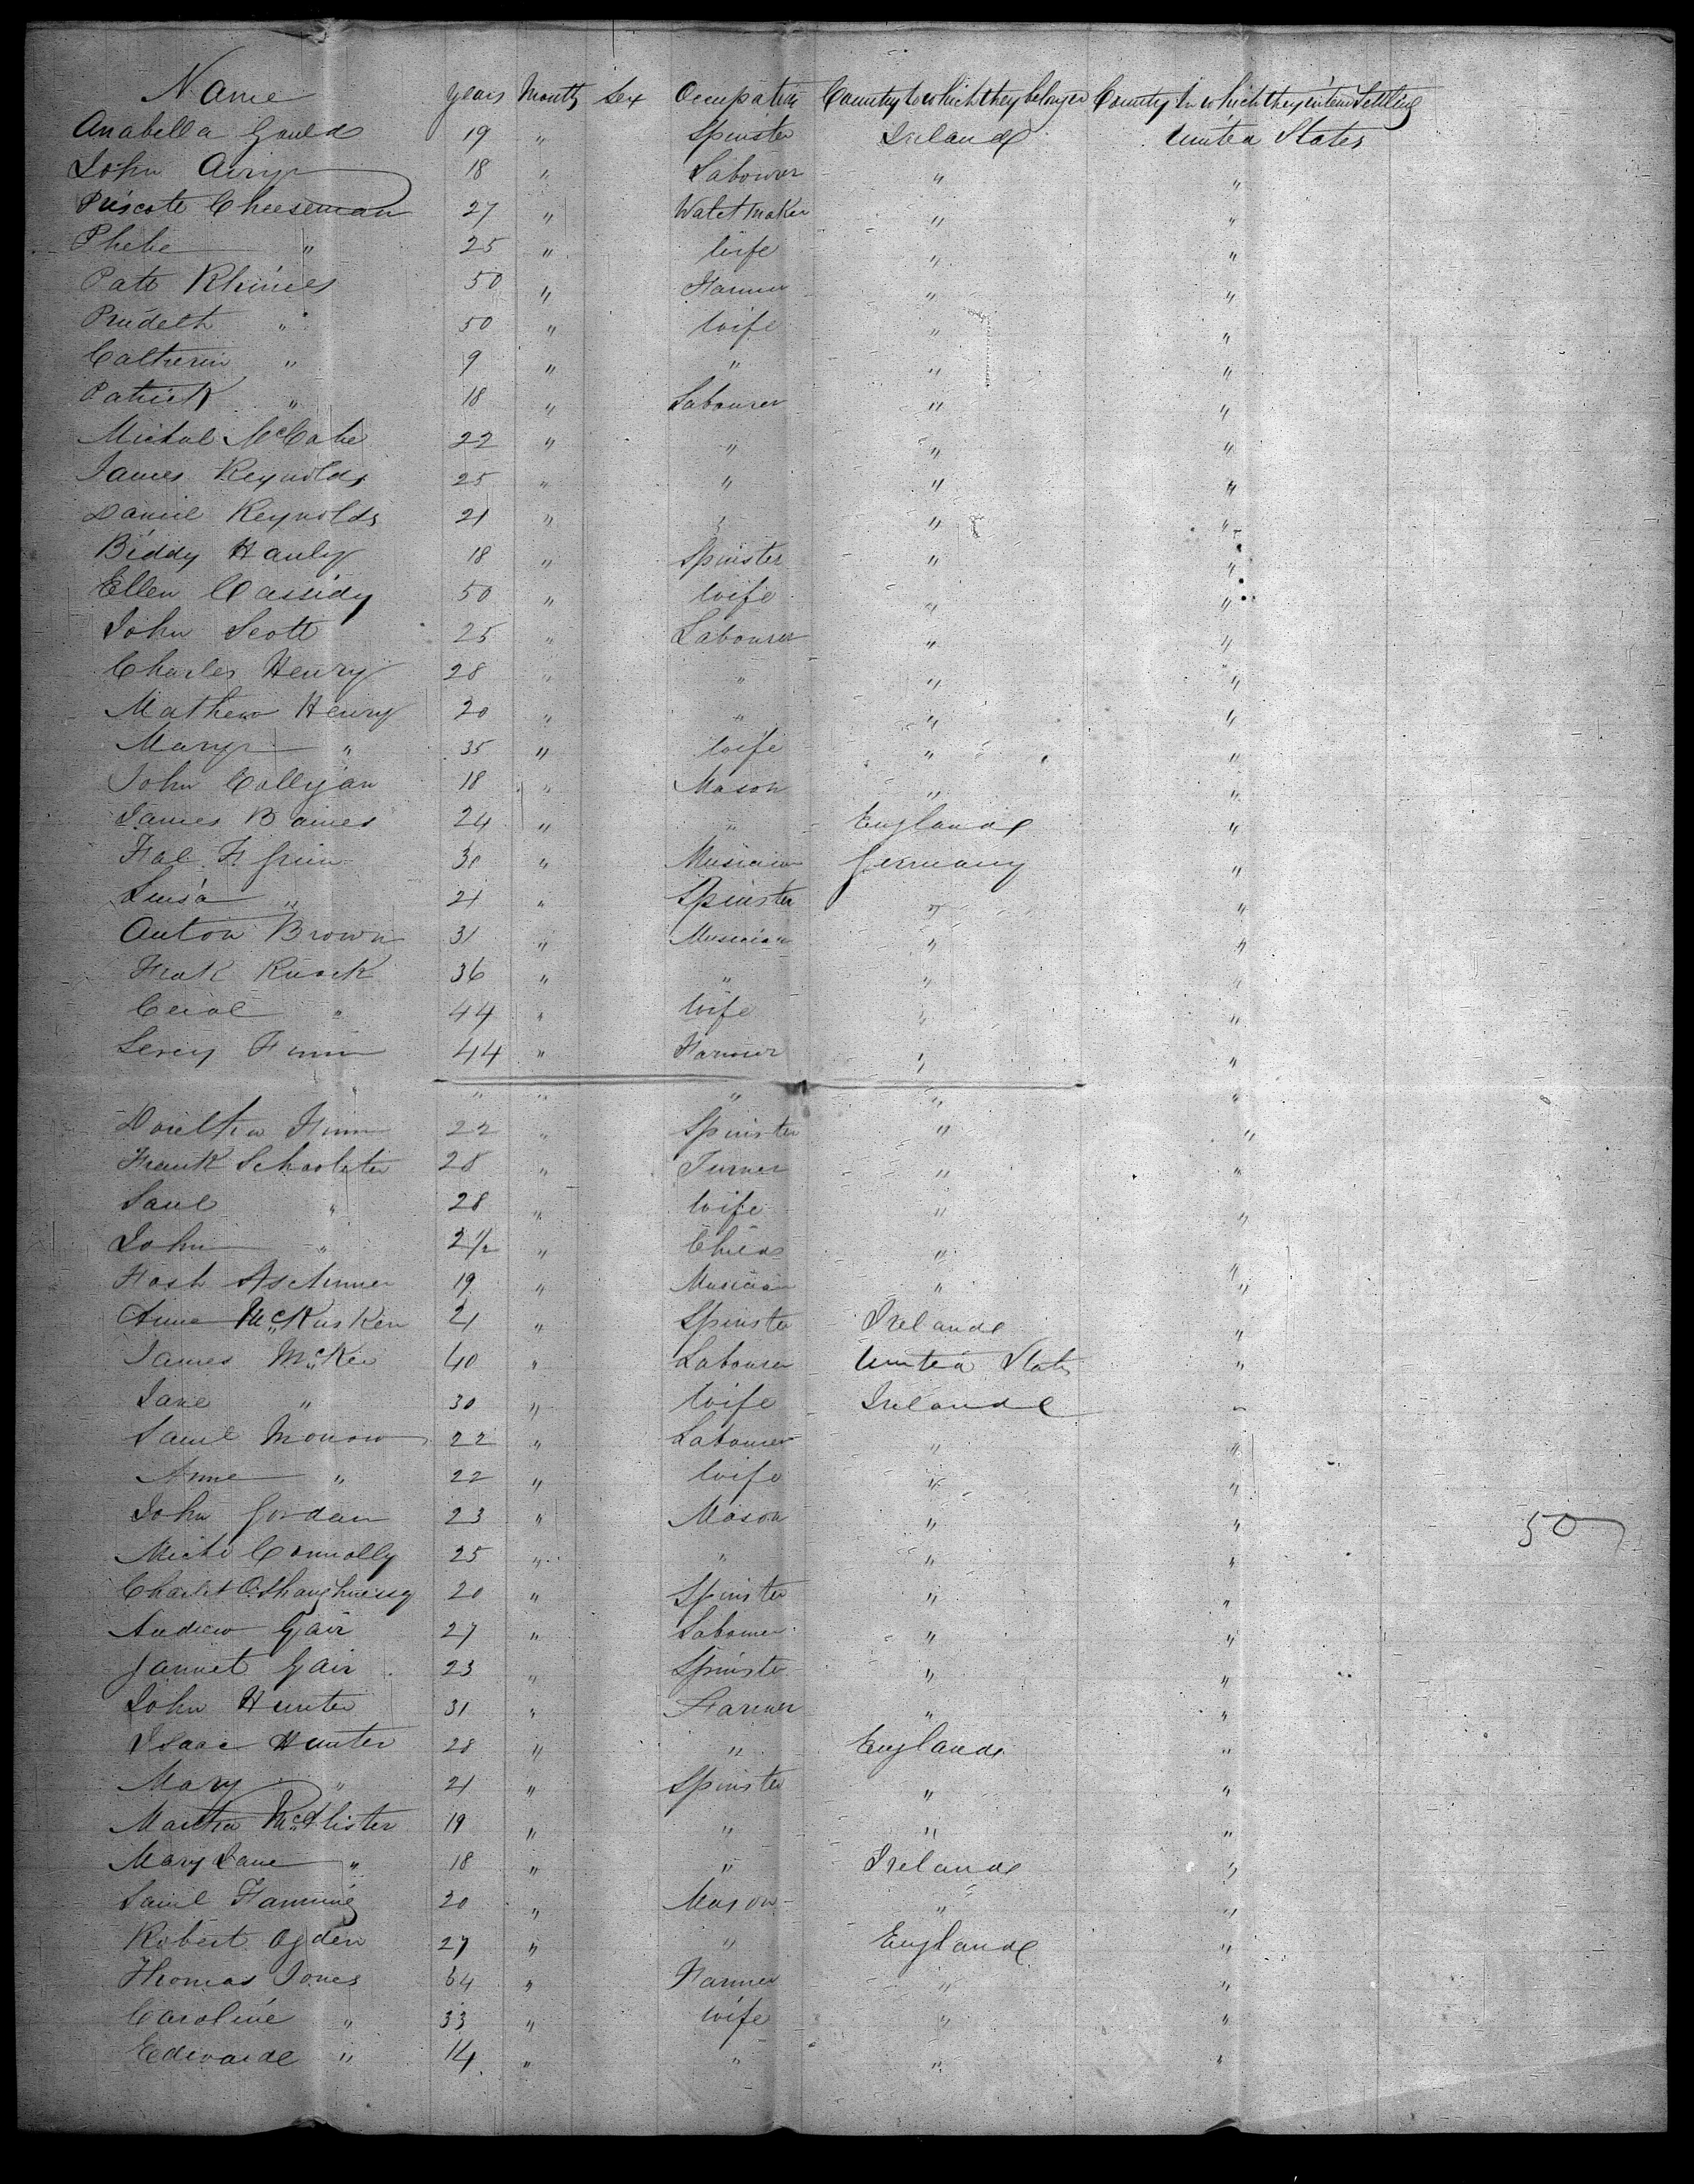 Name years Month Sex Occupation Country to which they belonged Country in which they intend Settling
Anabella Gould 19 " Spinster Ireland United States
John Airy 18 " Labourer " "
Cheeseman 27 " Watchmaker " "
Phebe " 25 " Wife " "
Patt 50 " Farmer " "
" 50 " Wife " "
Catherin " 9 " " " "
Patrick " 18 " Labourer " "
Michal McCabe 22 " " " "
James Reynolds 25 " " " "
Daniel Reynolds 21 " " " "
Biddy Hanly 18 " Spinster " "
Ellen Cassidy 50 " Wife " "
John Scott 25 " Labourer " "
Charles Henry 28 " " " "
Mathew Henry 20 " " " "
Mary " 35 " Wife " "
John Colligan 18 " Mason " "
James Baines 24 " " England "
30 " Musician Germany "
" 21 " Spinster " "
Anton Brown 31 " Musician " "
36 " " " "
" 44 " Wife " "
44 " Farmer " "
" " " " "
22 " Spinster " "
Frank 28 " Turner " "
" 28 " Wife " "
John " 2 1/2 " Child " "
19 " Musician " "
Anne McKusken 21 " Spinster Ireland "
James McKee 40 " Labourer United States "
Jane " 30 " Wife Ireland "
Saml Morrow 22 " Labourer " "
Anne " 22 " Wife " "
John Jordan 23 " Mason " " 50
Michl Connolly 25 " " " "
O'Shaughnessy 20 " Spinster " "
Andrew Gair 27 " Labourer " "
Jannet Gair 23 " Spinster " "
John Hunter 31 " Farmer " "
Isaac Hunter 28 " " England "
Mary " 21 " Spinster " "
Martha McAlister 19 " " " "
Mary Jane " 18 " " Ireland "
Saml Fanning 20 " Mason " "
Robert Ogden 27 " " England "
Thomas Jones 64 " Farmer " "
Caroline " 33 " Wife " "
Edward " 14 " " " "